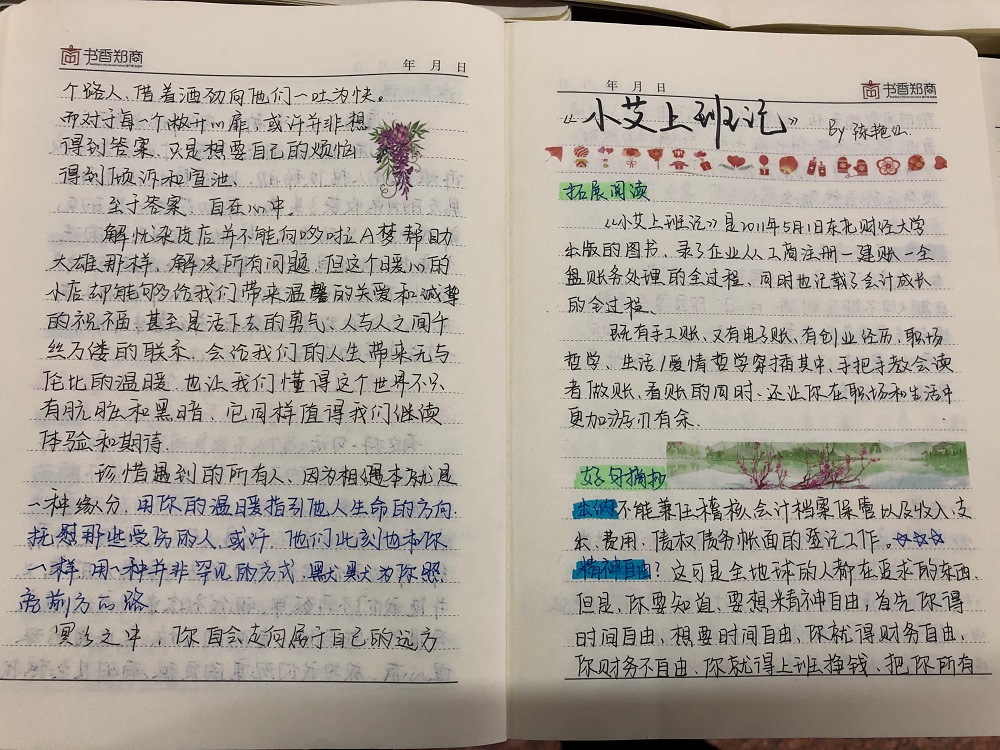 书香郑商
年 月 日
个路人,借着酒劲向他们一吐为快。
而对于每一个敞开心扉,或许并非想
得到答案,只是想要自己的烦恼
得到倾诉和宣泄、
至于答案 自在心中.
解忧杂货店并不能向哆啦A梦帮助
大雄那样,解决所有问题,但这个暖心的
小店却能够给我们带来温馨的关爱和诚挚
的祝福,甚至是活下去的勇气、人与人之间千
丝万偻的联系,会给我们的人生带来无与
伦比的温暖,也让我们懂得这个世界不只
有肮脏和黑暗,它同样值得我们继续
体验和期待.
珍惜遇到的所有人、因为相遇本就是
一种缘分,用你的温暖指引他人生命的方向.
抚慰那些受伤的人,或许,他们此刻也和你
一样,用一种并非罕见的方式,默默为你照
亮前方的路
冥冥之中,你自会走向属于自己的远方
年 月 日
书香郑商
《小艾上班记》 By 陈艳
拓展阅读
《小艾上班记》是2011年5月1日东北财经大学
出版的图书,录了企业从工商注册一建账一全
盘账务处理的全过程,同时也记载了会计成长
的全过程、
既有手工账、又有电子账,有创业经历,职场
哲学、生活/爱情哲学穿插其中,手把手教会读
者做账、看账的同时、还让你在职场和生活中
更加游刃有余.
好句摘抄
出纳不能兼任稽核,会计档案保管以及收入、支
出、费用,债权债务帐面的登记工作。☆☆☆
精神自由?这可是全地球的人都在追求的东西.
但是,你要知道,要想精神自由,首先你得
时间自由,想要时间自由,你就得财务自由,
你财务不自由,你就得上班挣钱、把你所有